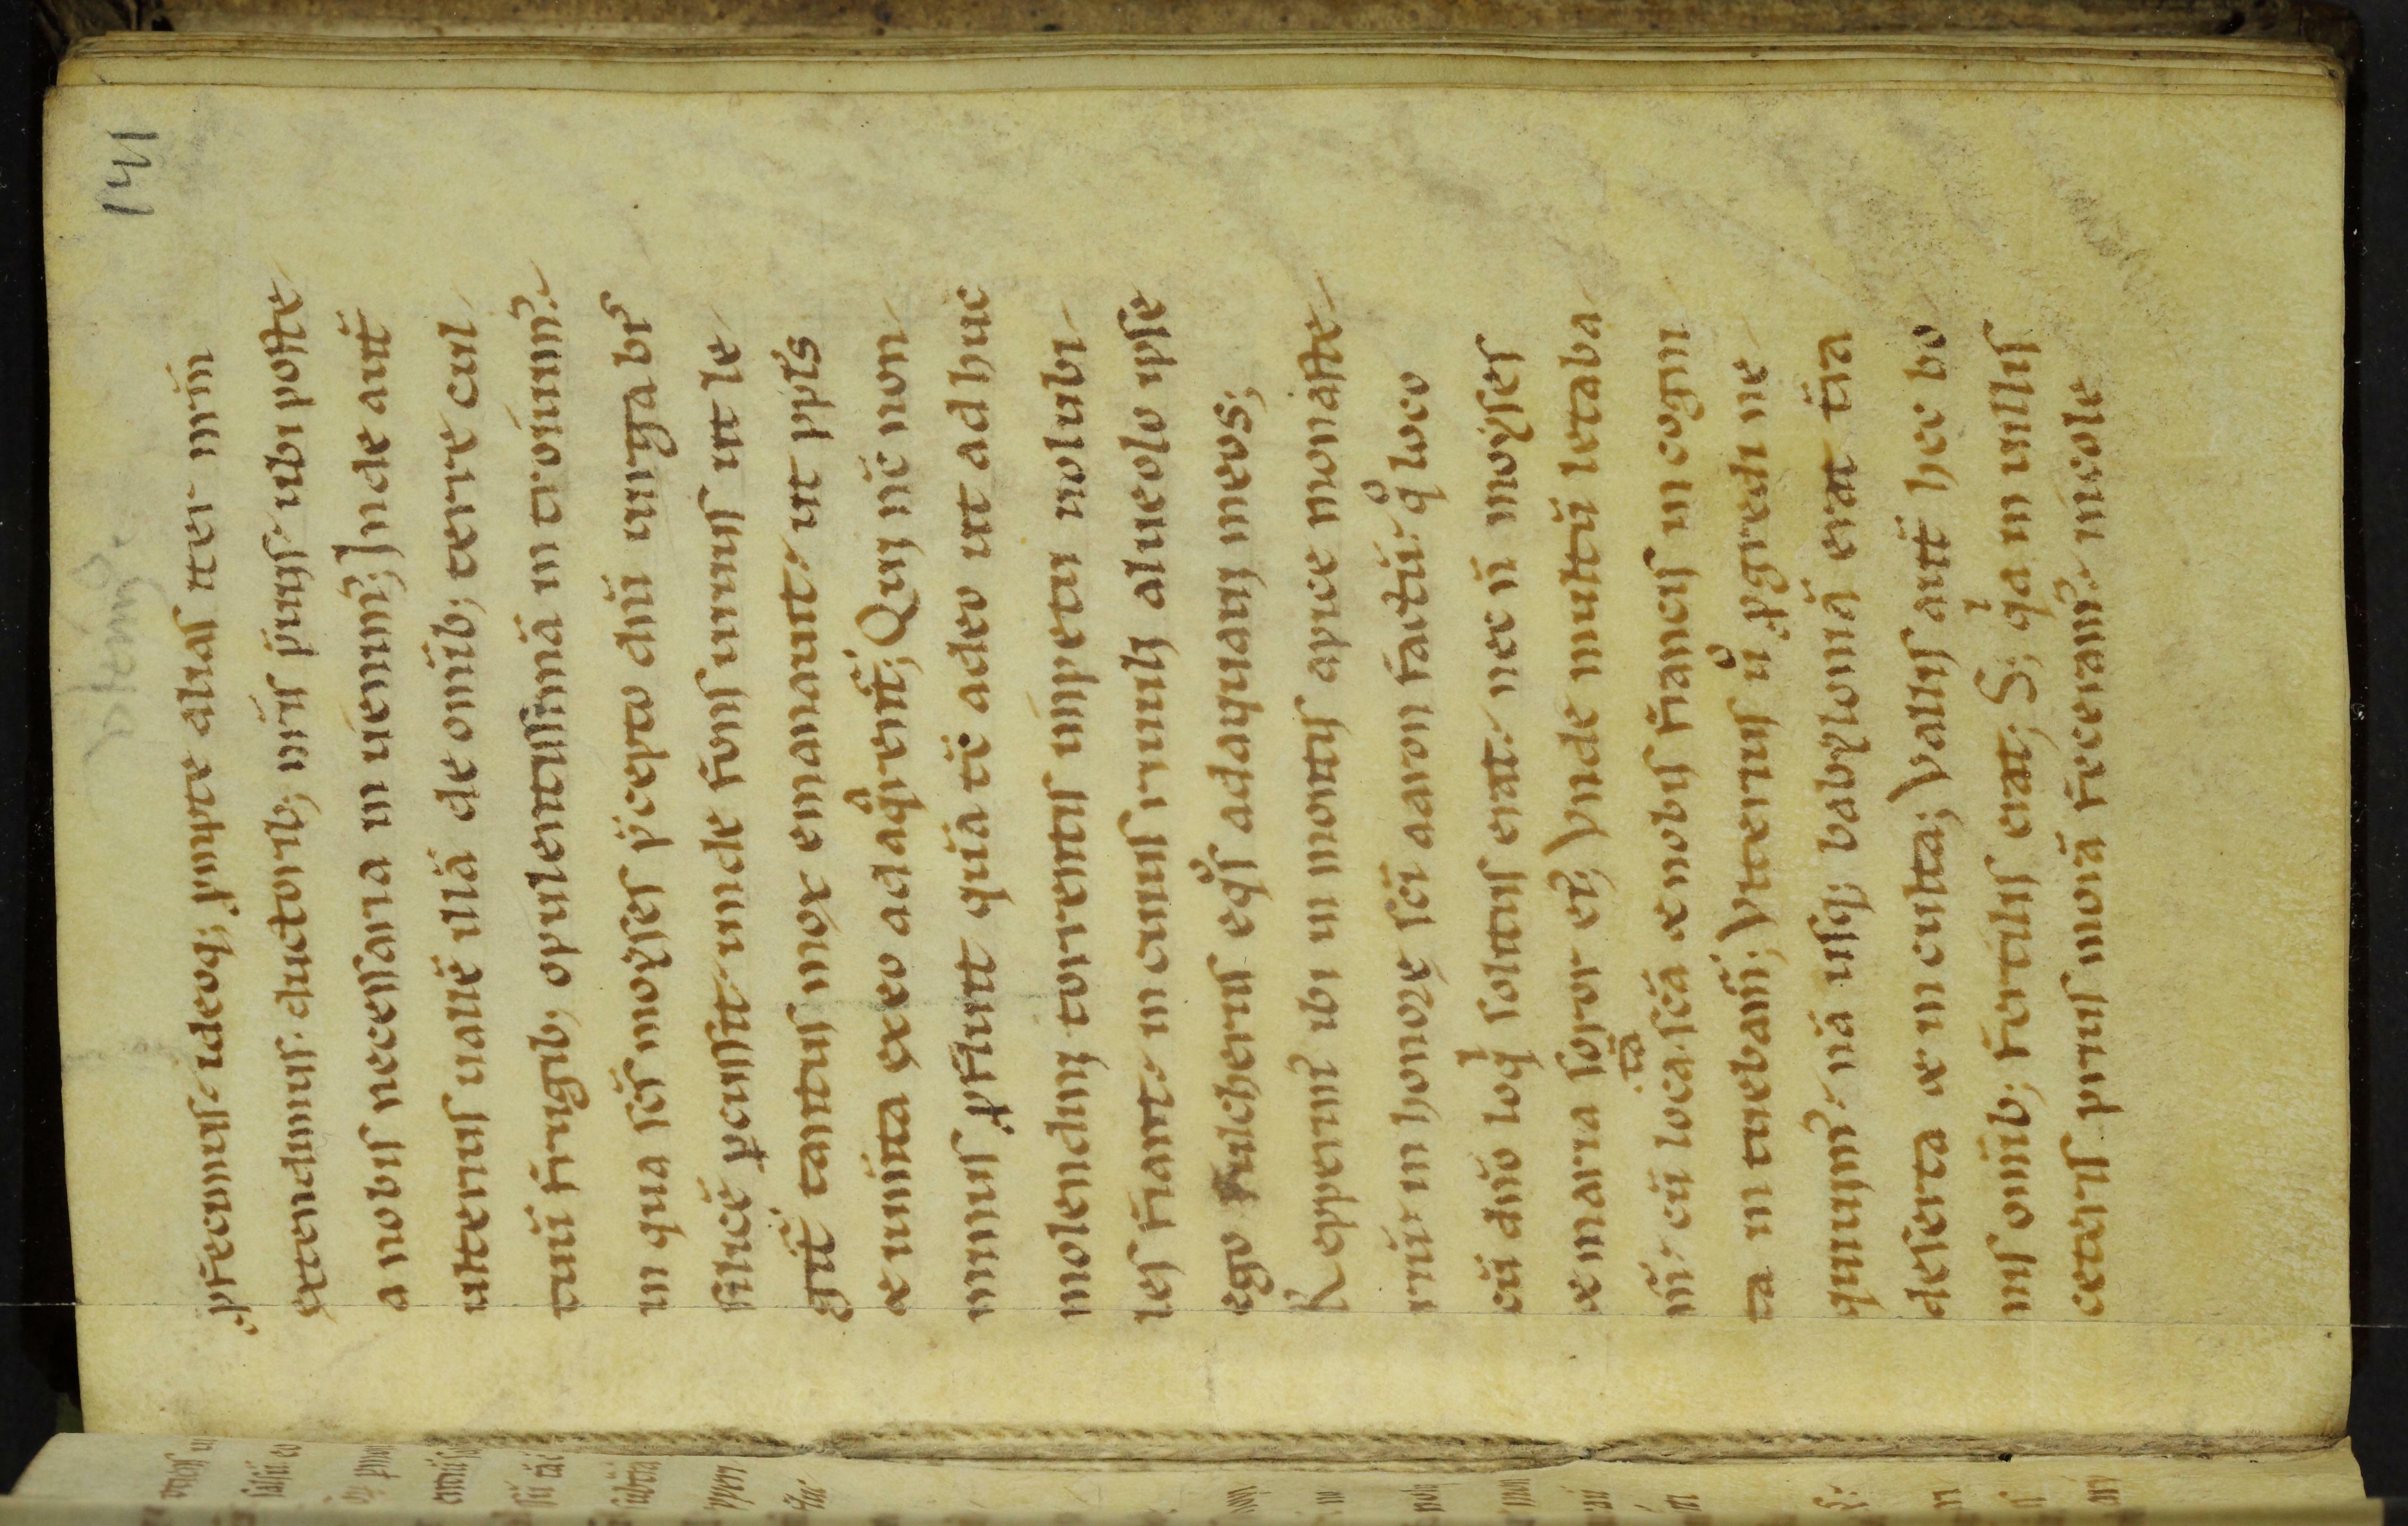 141
ꝓfecimus. ideoq; ꝓmpte alias iter nr̄m
extendimus. ductorib; nr̄is p̄uiis. ubi poste
a nobis necessaria inuenim᷒; Inde aut̄
ulterius uallē illā de om̄ib; terre cul
tuū frugib; opulentissimā introiuim᷒.
in qua sc̄s moẏses p̄cepto dn̄i uirga bis
silicē ꝑcussit. unde fons uiuus ut le
git̄ tantus mox emanauit. ut ppl̄s
& ium̄ta ex eo adaqͣrent̄; Qui nc̄ non
minus ꝓfluit quā tc̄ adeo ut adhuc
molendini torrentis impetu uolubi
les fiant. in cuius riuuli alueolo ipse
ego fulcherius eqͦs adaquaui meos;
Repperim᷒ ibi in montis apice monaste
riū. in honore sc̄i aaron factū. qͦ loco
cū dn̄o loqͥ solitus erat. nec n̄ moẏses
& maria soror ei᷒; Vnde multū letaba
m̄. cū loca .ta. sc̄a & nobis francis incogni
ta intuebam̄; Vlterius uͦ ꝓgredi ne
quiuim᷒. nā usq; babẏloniā erat t̄ra
deserta & inculta; Vallis aut̄ hec bo
nis om̄ib; fertilis erat; S; qͥa in uillis
ceteris prius morā feceram᷒. incole